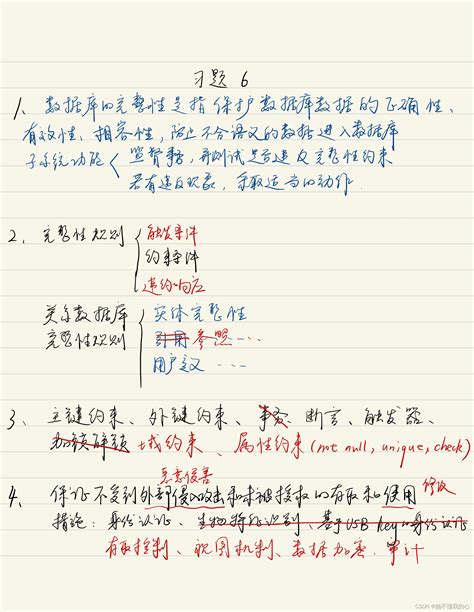 习题 6
1、数据库的完整性是指保护数据库数据的正确性、
有效性、相容性，防止不合语义的数据进入数据库
子系统功能 监督事务，并测试是否违反完整性约束
若有违反现象，采取适当的动作.
2、完整性规则 触发条件
约束条件
违约响应
关系数据库 实体完整性
完整性规则 引用 参照 ……
用户定义 ……
3、主键约束、外键约束、事务、断言、触发器、
域约束、属性约束(not null, unique, check)
恶意侵害
4、保证不受到外部侵入攻击和未被授权的存取和使用 修改
措施：身份认证、生物特征识别、基于USB Key的身份认证
存取控制、视图机制、数据加密、审计